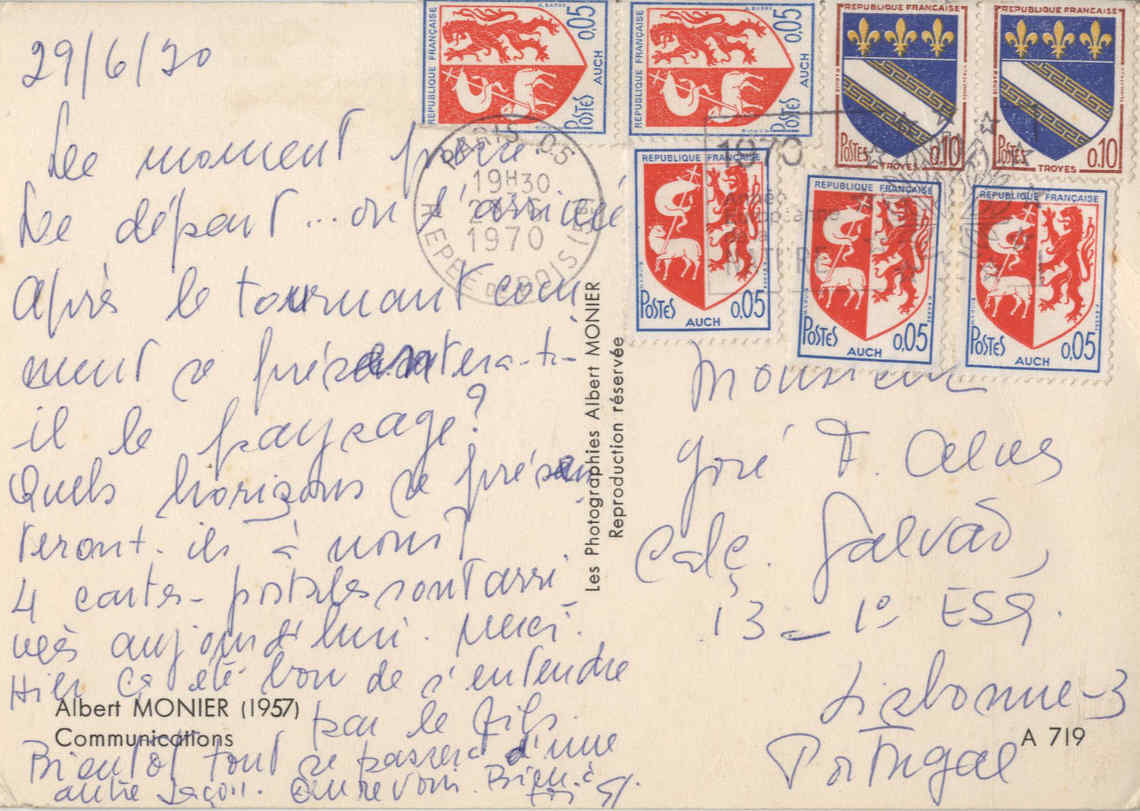 29/6/70
Le moment précis.
Le départ... ou l'arrivée
Après le tournant com
ment se présentera-t-
il le paysage?
Quels horizons se présen
teront-ils à nous?
4 cartes-postales sont arri
vées aujourd'hui. Merci.
Hier ça été bon de s'entendre
par le fils.
Bientôt tout se passera d'une
autre façon. Au revoir. Bien à
toi
Albert MONIER (1957)
Communications
Les Photographies Albert MONIER
Reproduction réservée
REPUBLIQUE FRANÇAISE
POSTES
AUCH
0,05
REPUBLIQUE FRANÇAISE
POSTES
AUCH
0,05
REPUBLIQUE FRANÇAISE
POSTES
TROYES
0,10
REPUBLIQUE FRANÇAISE
POSTES
TROYES
0,10
REPUBLIQUE FRANÇAISE
POSTES
0,05
AUCH
REPUBLIQUE FRANÇAISE
POSTES
0,05
AUCH
REPUBLIQUE FRANÇAISE
POSTES
0,05
AUCH
PARIS 05
19H30
1970
R. EPEE DE BOIS (5e)
1970
Année
Européenne
de la
NATURE
Monsieur
José A. Alves
Calç. Galvão,
13 - 1º ESQ.
Lisbonne-3
Portugal
A 719